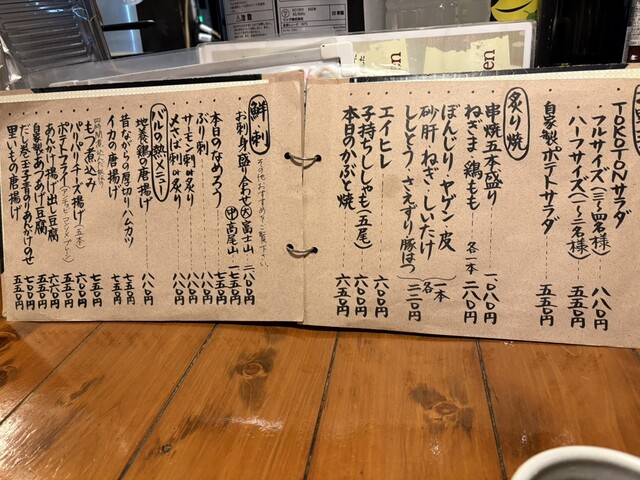 TOKOTONサラダ
フルサイズ(三〜四名様) 八八〇円
ハーフサイズ(一〜二名様) 五五〇円
自家製ポテトサラダ 五五〇円
炙り焼
串焼五本盛り 一、〇八〇円
ねぎま・鶏もも 各一本 二八〇円
ぼんじり・ヤゲン・皮
砂肝・ねぎ・しいたけ
ししとう・さえずり・豚はつ
各一本 二二〇円
エイヒレ 六六〇円
子持ちししゃも(五尾) 六六〇円
本日のかぶと焼 六五〇円
鮮刺
その他おすすめもご覧下さい
お刺身盛り合わせ 大 富士山 二、八〇〇円
中 高尾山 一、七五〇円
本日のなめろう 七五〇円
ぶり刺 八八〇円
サーモン刺or炙り 八八〇円
〆さば刺or炙り 八八〇円
バルの熱メニュー
地養鶏の唐揚げ 八八〇円
昔ながらの厚切りハムカツ 七五〇円
イカの唐揚げ 七五〇円
もつ煮込み 七五〇円
パリパリチーズ揚げ(五本) 六〇〇円
ポテトフライ(アンチョビ・コンソメ・プレーン) 五五〇円
あんかけ揚げ出し豆腐 六六〇円
自家製あつあげ豆腐 五五〇円
だし巻玉子青のりあんかけのせ 七〇〇円
里いもの唐揚げ 五五〇円